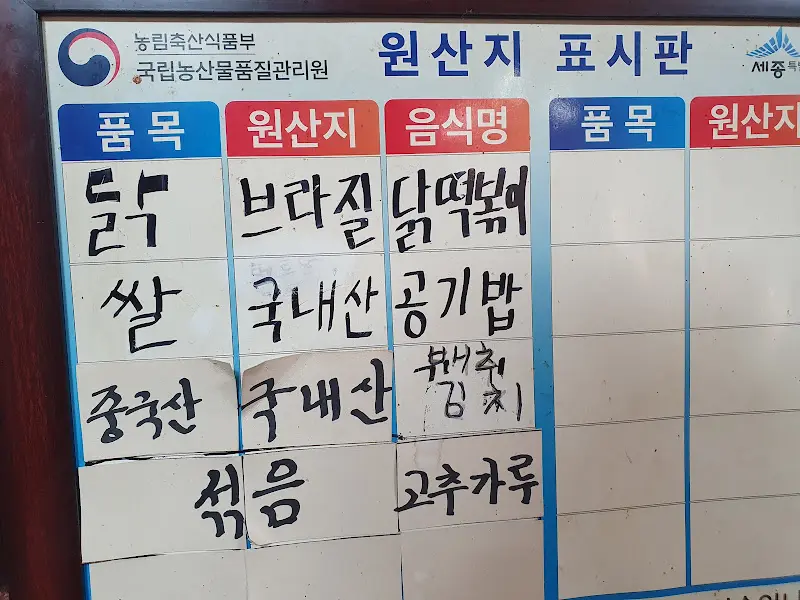 농림축산식품부
국립농산물품질관리원
원산지 표시판
세종특
품목 원산지 음식명 품목 원산지
닭 브라질 닭떡볶이
쌀 국내산 공기밥
중국산 국내산 배추
김치
섞음 고추가루